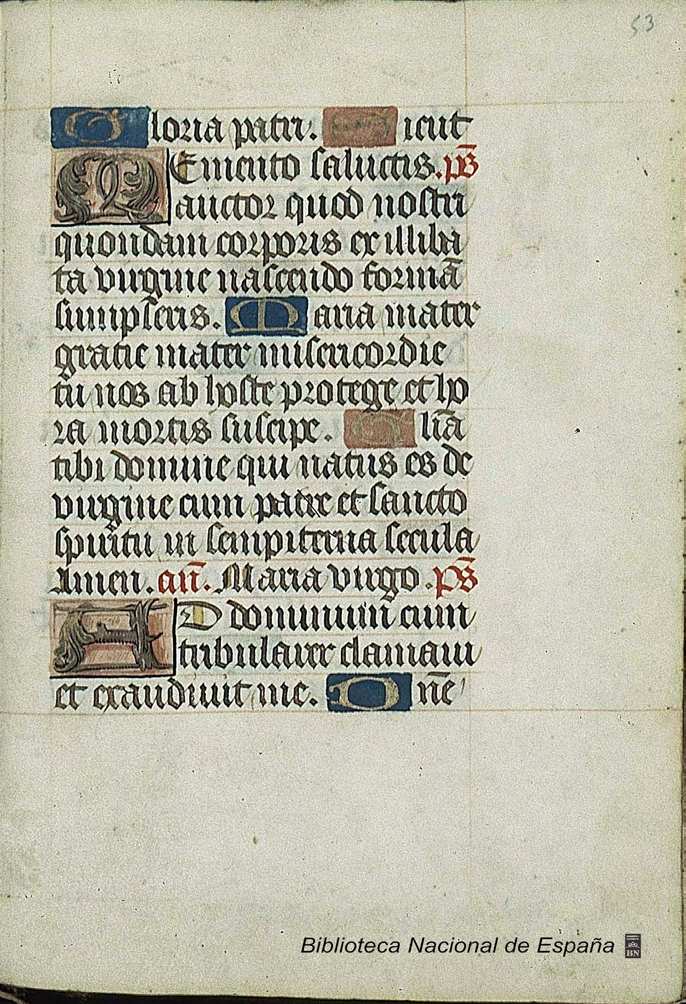 53
Gloria patri. Sicut
Memento salutis. p̄s
auctor quod nostri
quondam corporis ex illiba
ta virgine nascendo formā
sumpseris. Maria mater
gracie mater misericordie
tu nos ab hoste protege et ho
ra mortis suscipe. Gl̄ia
tibi domine qui natus es de
virgine cum patre et sancto
spiritu in sempiterna secula
Amen. añ. Maria virgo. p̄s
AD dominum cum
tribularer clamaui
et exaudiuit me. Dn̄e
Biblioteca Nacional de España
BN